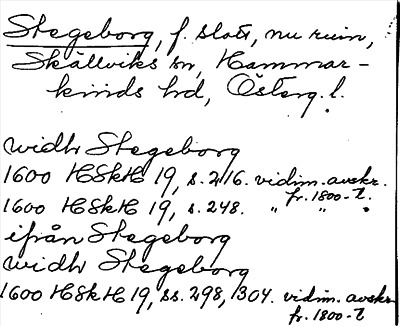 Stegeborg, f. slott, nu ruin,
Skällviks sn, Hammar-
kinds hd, Österg. l.
widh Stegeborg
1600 HSkH 19, s. 216. vidim. avskr.
fr. 1800-t.
1600 HSkH 19, s. 248. " " .
ifrån Stegeborg
widh Stegeborg
1600 HSkH 19, ss. 298, 1304. vidim. avskr.
fr. 1800-t